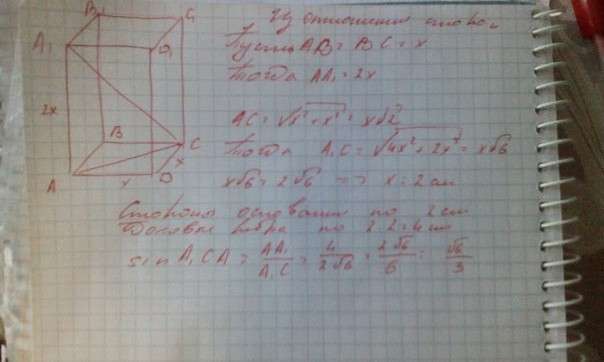 B₁ C₁
A₁ D₁
2x
B C
x
A x D
Из отношения сторон
Пусть AB = BC = x
Тогда AA₁ = 2x
AC = √x² + x² = x√2
Тогда A₁C = √4x² + 2x² = x√6
x√6 = 2√6 => x = 2 см
Стороны основания по 2 см
Боковые ребра по 2·2=4 см
sin A₁CA = AA₁/A₁C = 4/2√6 = 2√6/6 = √6/3